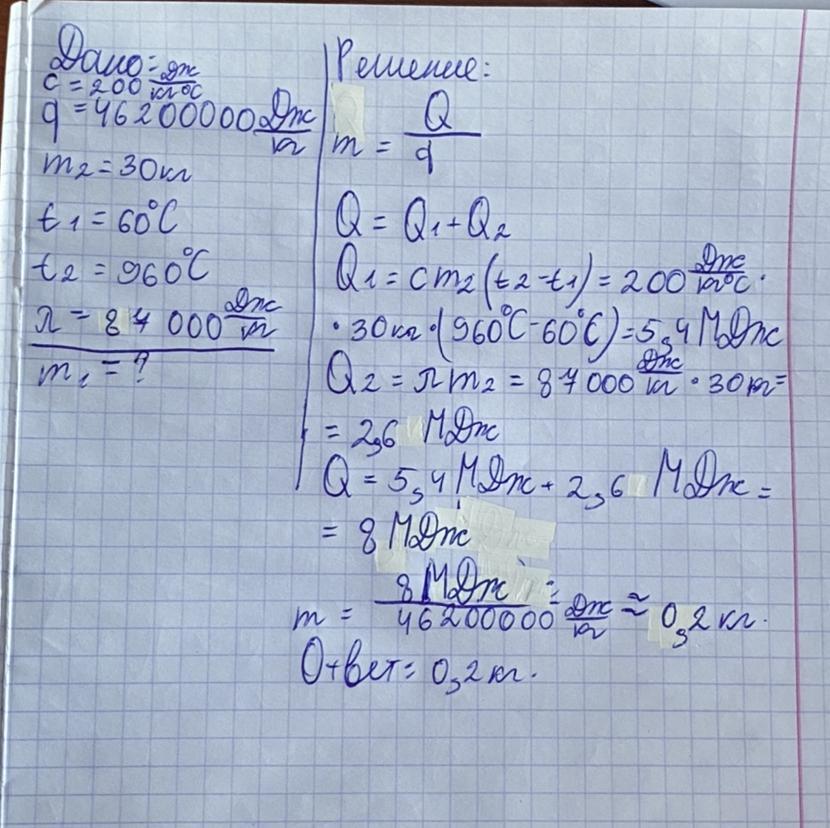 Дано:
c = 200 Дж/кг°С
q = 46200000 Дж/кг
m₂ = 30кг
t₁ = 60°С
t₂ = 960°С
λ = 87 000 Дж/кг
m₁ = ?
Решение:
m = Q/q
Q = Q₁ + Q₂
Q₁ = cm₂(t₂-t₁) = 200 Дж/кг°С ·
· 30кг · (960°С - 60°С) = 5,4 МДж
Q₂ = λm₂ = 87000 Дж/кг · 30кг =
= 2,6 МДж
Q = 5,4 МДж + 2,6 МДж =
= 8 МДж
m = 8 МДж / 46200000 Дж/кг ≈ 0,2 кг.
Ответ: 0,2 кг.